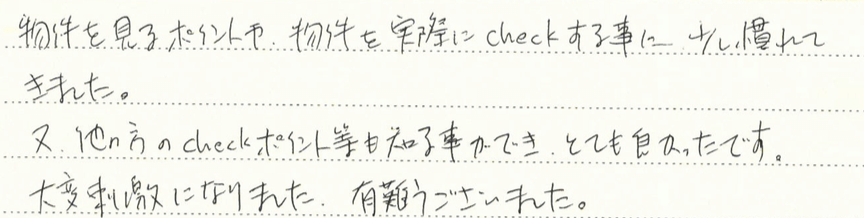 物件を見るポイントや、物件を実際にcheckする事に 少し慣れて
きました。
又、他の方のcheckポイント等も知る事ができ、とても良かったです。
大変刺激になりました。有難うございました。